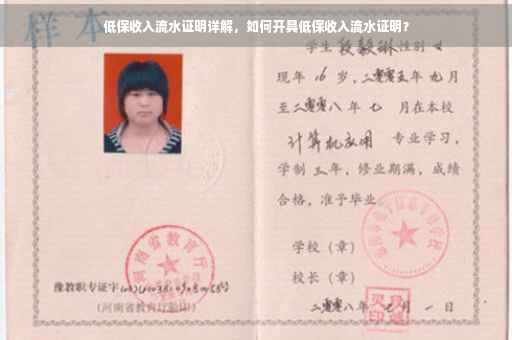 低保收入流水证明详解，如何开具低保收入流水证明？
样本
学生 段毅琳 性别 女
现年 16 岁，二零零五年 九 月
至二零零八 年 七 月在本校
计算机应用 专业学习，
学制 三 年，修业期满，成绩
合格，准予毕业
学校（章）
校长（章）
二零零八年 七 月 一 日
河南省教育厅
豫教职专证字
（河南省教育厅验印）